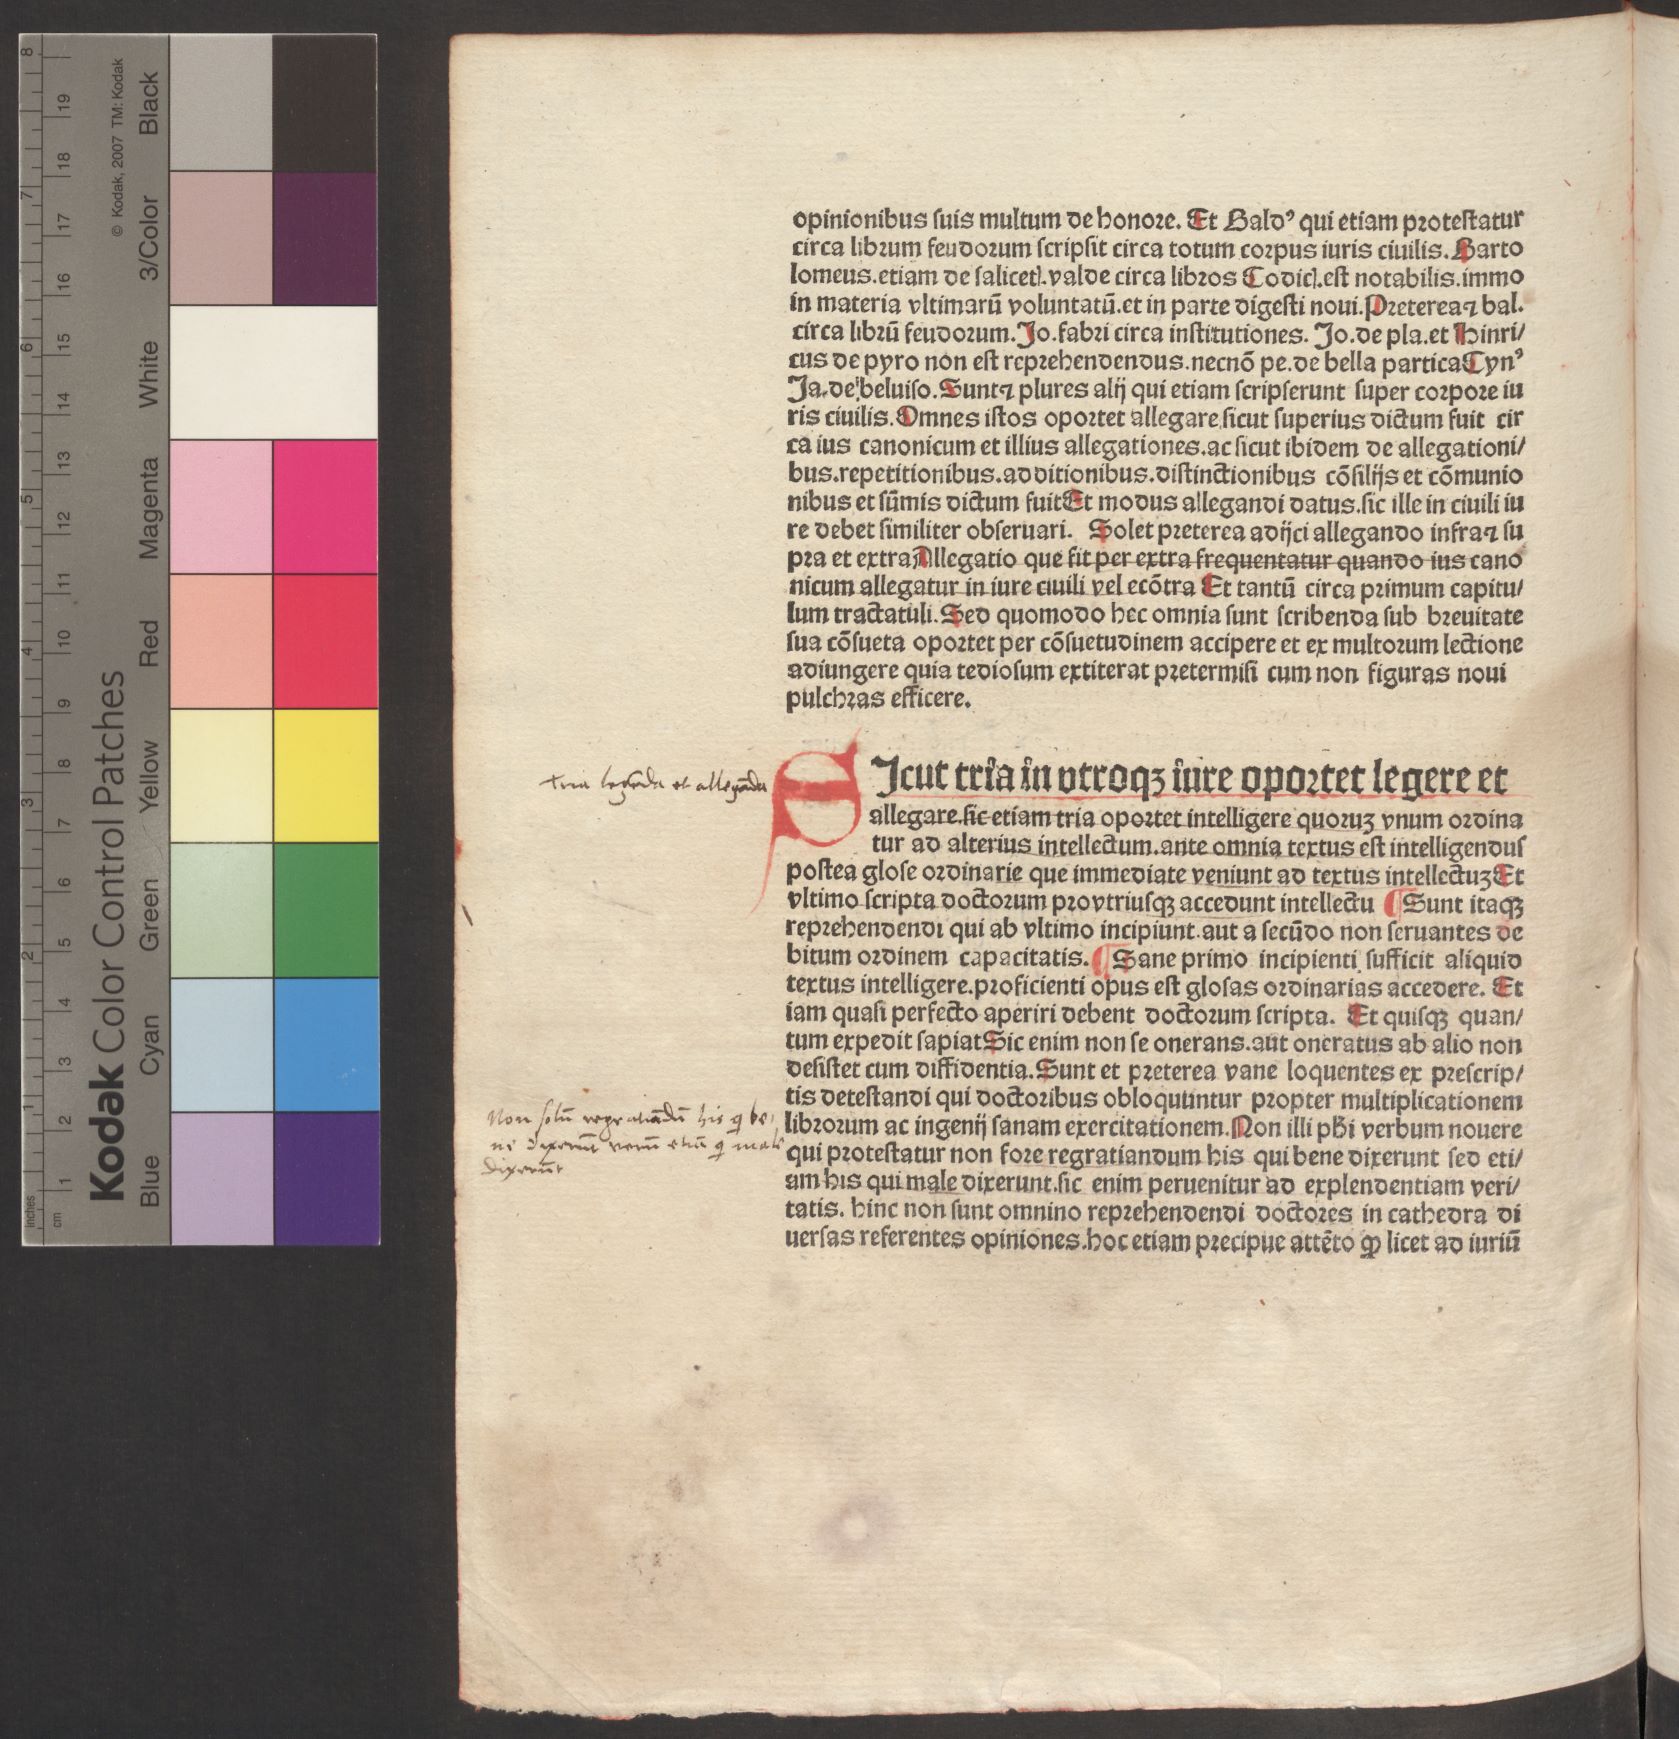 opinionibus suis multum de honore. Et Bald⁹ qui etiam protestatur
circa librum feudorum scripsit circa totum corpus iuris ciuilis. Barto
lomeus.etiam de salicetl.valde circa libros Codicl.est notabilis.immo
in materia vltimarū voluntatū.et in parte digesti noui.Preterea⁊ bal.
circa librū feudorum.Jo.fabri circa institutiones. Jo.de pla.et Hinri/
cus de pyro non est reprehendendus.necnō pe.de bella particaCyn⁹
Ja.de beluiso.Sunt⁊ plures alij qui etiam scripserunt super corpore iu
ris ciuilis.Omnes istos oportet allegare sicut superius dictum fuit cir
ca ius canonicum et illius allegationes.ac sicut ibidem de allegationi/
bus.repetitionibus.additionibus.distinctionibus cōsilijs et cōmunio
nibus et sūmis dictum fuitEt modus allegandi datus.sic ille in ciuili iu
re debet similiter obseruari. Solet preterea adijci allegando infra⁊ su
pra et extraAllegatio que fit per extra frequentatur quando ius cano
nicum allegatur in iure ciuili vel ecōtra Et tantū circa primum capitu/
lum tractatuli.Sed quomodo hec omnia sunt scribenda sub breuitate
sua cōsueta oportet per cōsuetudinem accipere et ex multorum lectione
adiungere quia tediosum extiterat pretermisi cum non figuras noui
pulchras efficere.
tria legēda et allegāda
SIcut tria in vtroqꝫ iure oportet legere et
allegare.sic etiam tria oportet intelligere quoruꝫ vnum ordina
tur ad alterius intellectum.ante omnia textus est intelligendus
postea glose ordinarie que immediate veniunt ad textus intellectuꝫEt
vltimo scripta doctorum provtriusqꝫ accedunt intellectu ¶Sunt itaqꝫ
reprehendendi qui ab vltimo incipiunt.aut a secūdo non seruantes de
bitum ordinem capacitatis.¶Sane primo incipienti sufficit aliquid
textus intelligere.proficienti opus est glosas ordinarias accedere. Et
iam quasi perfecto aperiri debent doctorum scripta. Et quisqꝫ quan/
tum expedit sapiatSic enim non se onerans.aut oneratus ab alio non
desistet cum diffidentia.Sunt et preterea vane loquentes ex prescrip/
tis detestandi qui doctoribus obloquuntur propter multiplicationem
librorum ac ingenij sanam exercitationem.Non illi phi verbum nouere
qui protestatur non fore regratiandum his qui bene dixerunt sed eti/
am his qui male dixerunt.sic enim peruenitur ad explendentiam veri/
tatis. hinc non sunt omnino reprehendendi doctores in cathedra di
uersas referentes opiniones.hoc etiam precipue attēto ꝙ licet ad iuriū
Non solū regratiādū his q̄ be
ne dixerūt verū etiā q̄ male
dixerūt
Kodak Color Control Patches
© Kodak, 2007 TM: Kodak
Blue Cyan Green Yellow Red Magenta White 3/Color Black
inches 1 2 3 4 5 6 7 8
cm 1 2 3 4 5 6 7 8 9 10 11 12 13 14 15 16 17 18 19